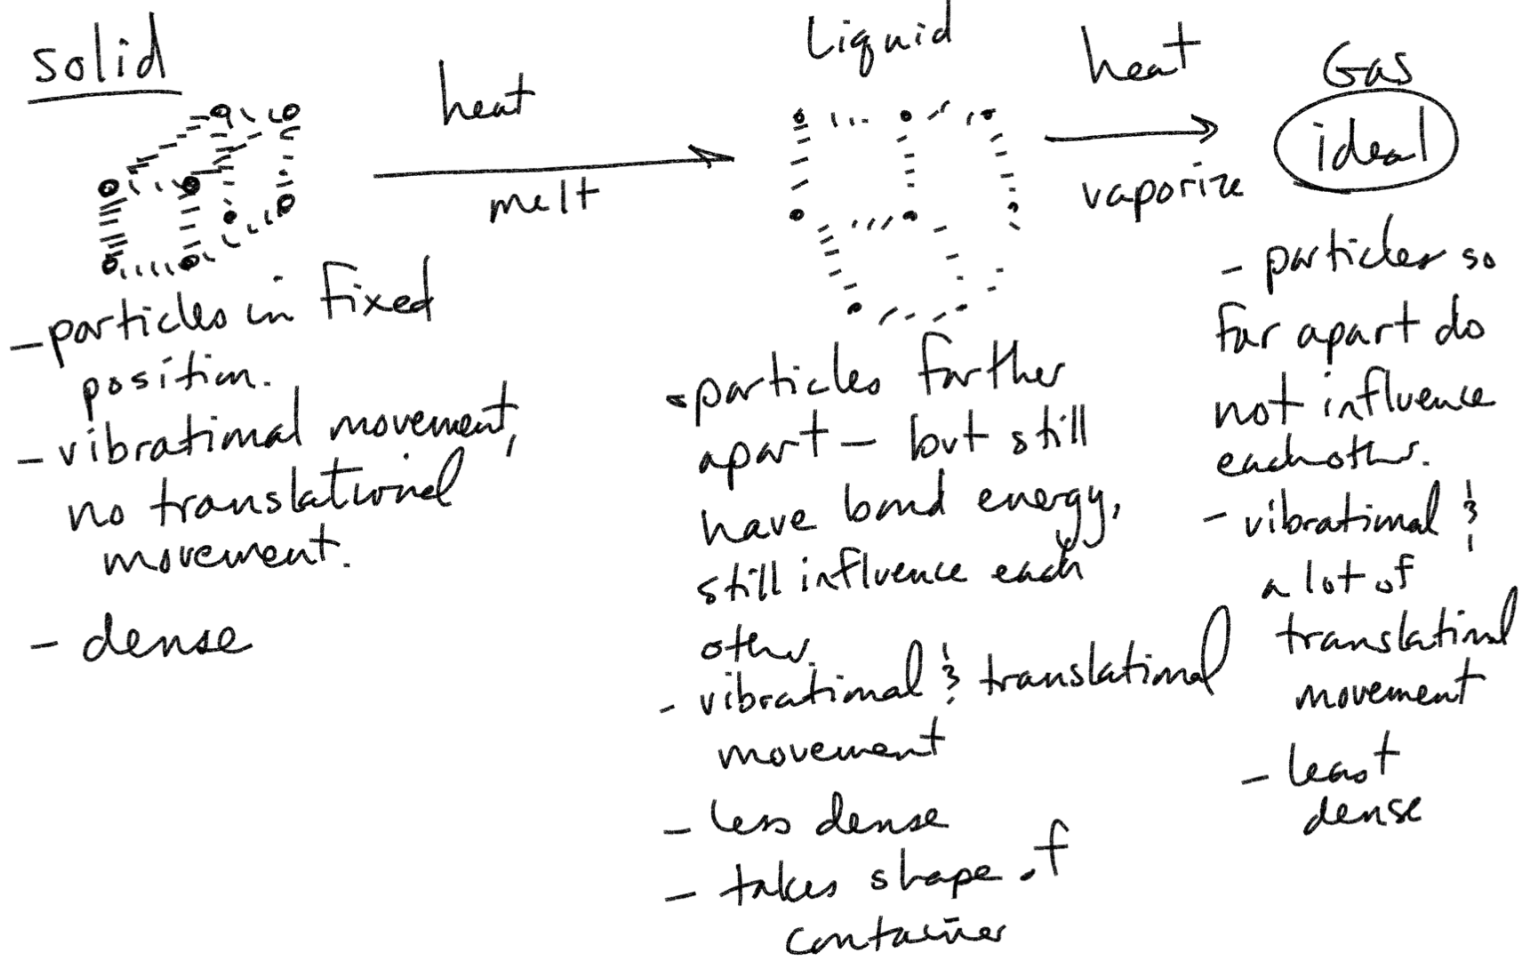 solid
heat
melt
Liquid
heat
vaporize
Gas
ideal
- particles in fixed
position.
- vibrational movement,
no translational
movement.
- dense
- particles farther
apart - but still
have bond energy,
still influence each
other.
- vibrational & translational
movement
- less dense
- takes shape of
container
- particles so
far apart do
not influence
eachother.
- vibrational &
a lot of
translational
movement
- least
dense